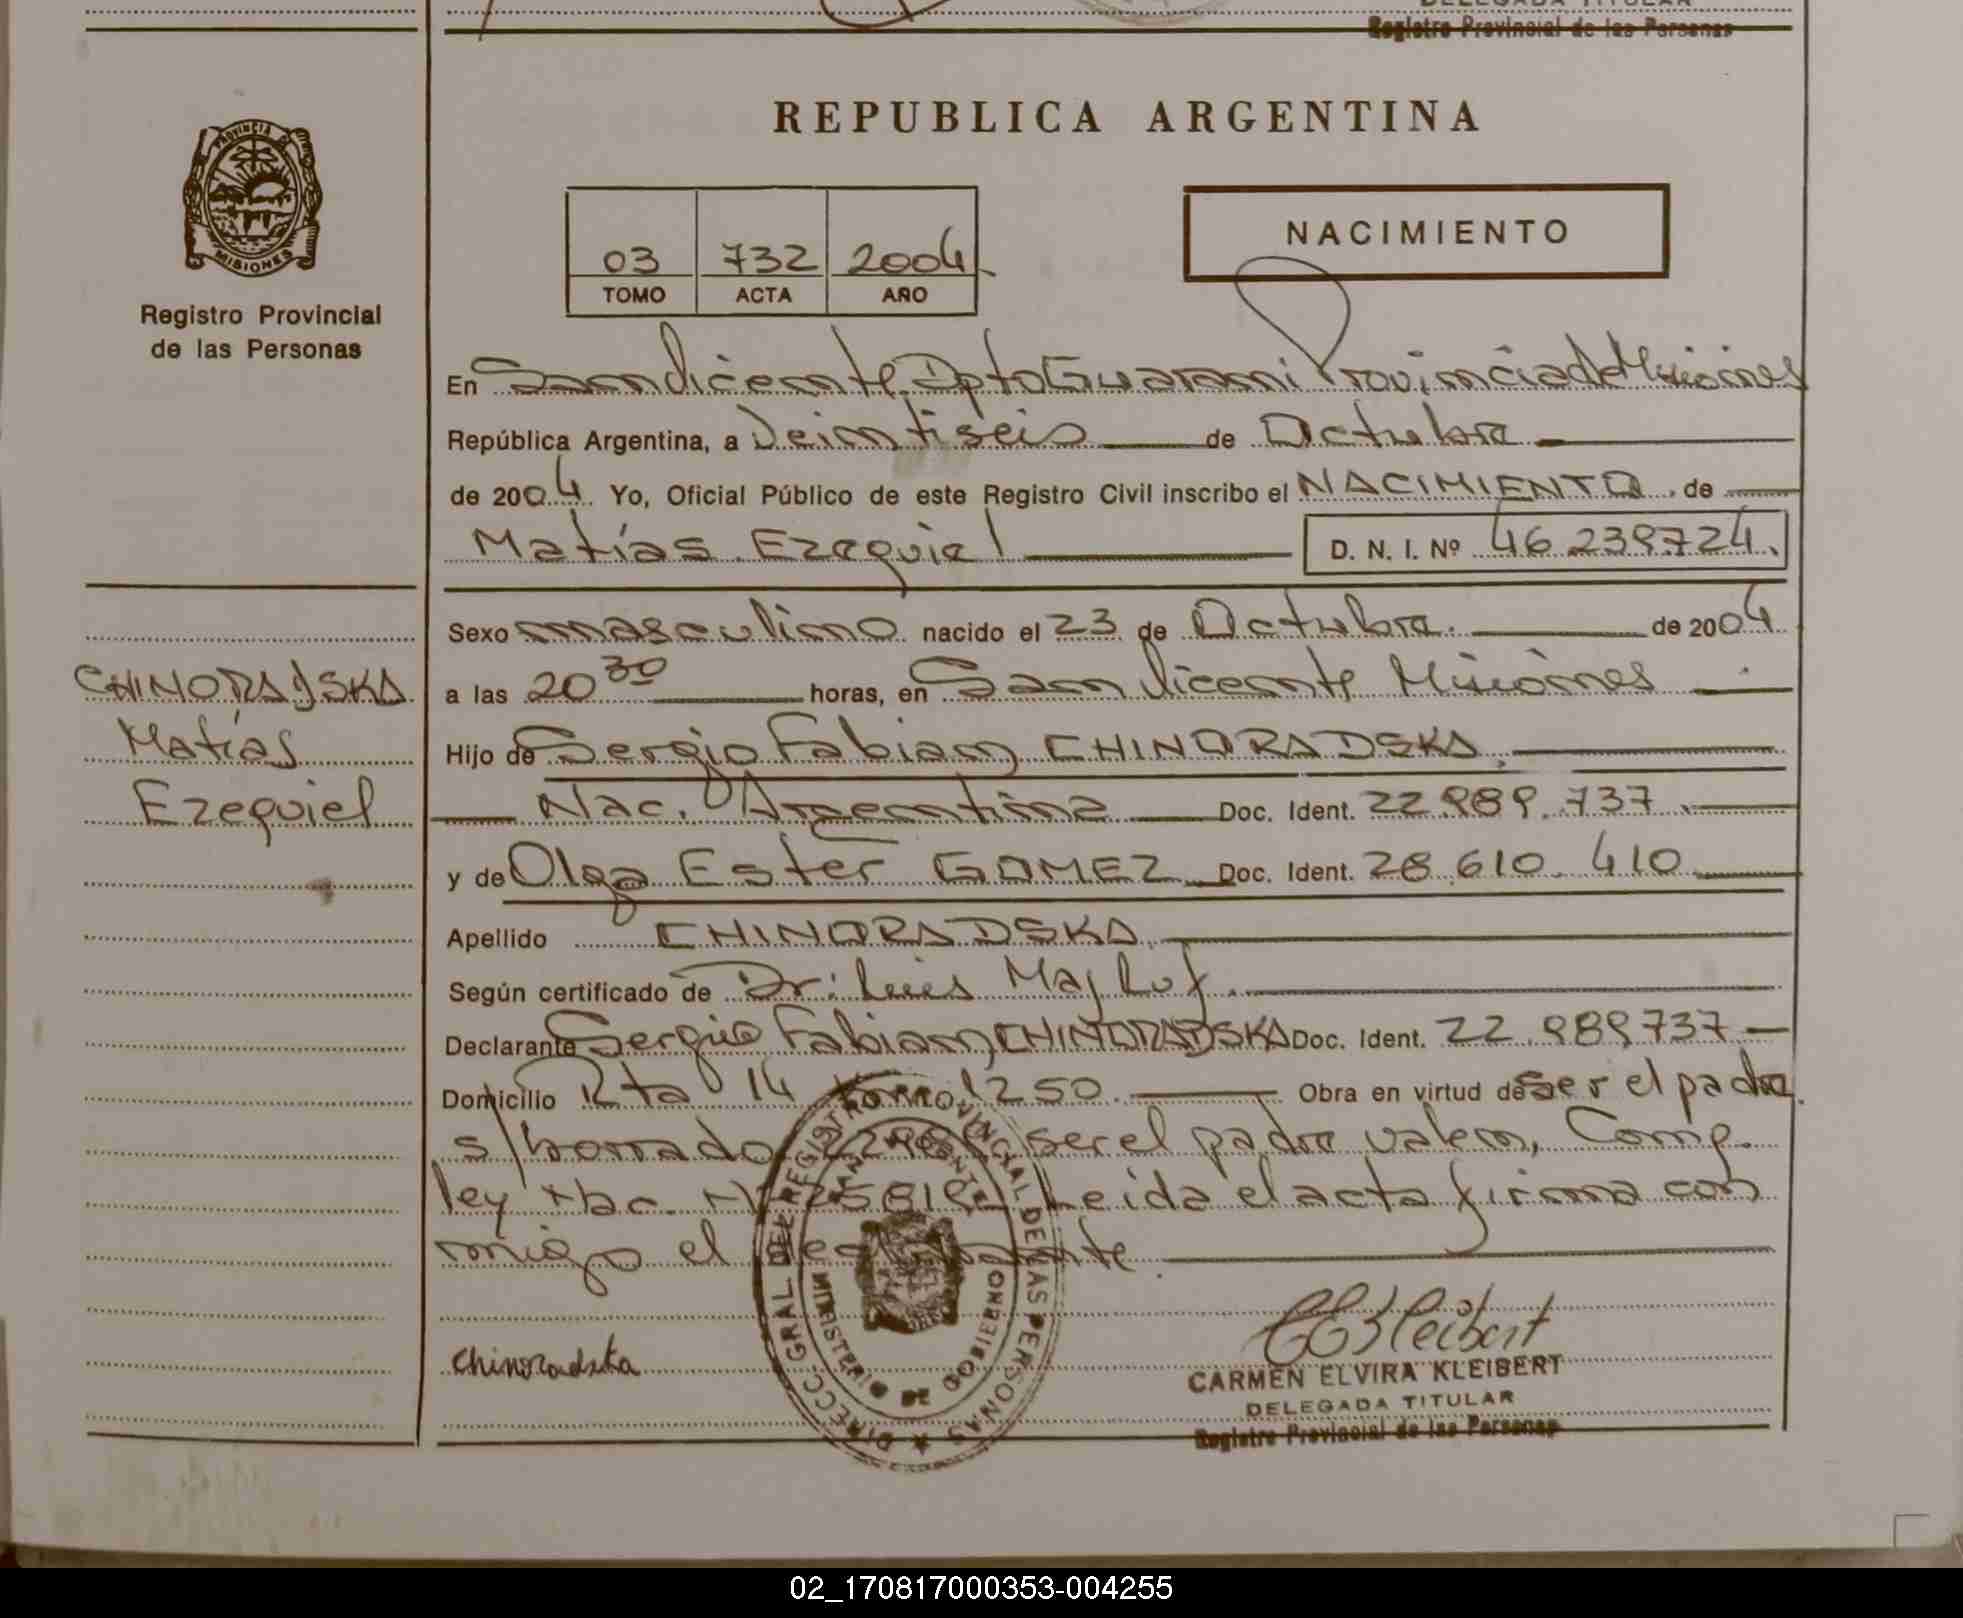 DELEGADA TITULAR
Registro Provincial de las Personas
REPUBLICA ARGENTINA
PROVINCIA DE
MISIONES
Registro Provincial
de las Personas
03 732 2004
TOMO ACTA AÑO
NACIMIENTO
En San Vicente Dpto Guarani Provincia de Misiones
República Argentina, a Veintiseis de Octubre
de 2004. Yo, Oficial Público de este Registro Civil inscribo el NACIMIENTO de
Matías Ezequiel D. N. I. Nº 46.239724.
Sexo masculino nacido el 23 de Octubre. de 2004
a las 20 30 horas, en San Vicente Misiones
Hijo de Sergio Fabian CHINORADSKA
Nac. Argentina Doc. Ident. 22.989.737
y de Olga Ester GOMEZ Doc. Ident. 28.610.410
Apellido CHINORADSKA
Según certificado de Dr: Luis Majluf
Declarante Sergio Fabian CHINORADSKA Doc. Ident. 22.989737
Domicilio Rta 14 1250. Obra en virtud de ser el padre.
s/borrado ser el padre valen, Comp.
ley Nac. Nº Leida el acta firma con
migo el
CHINORADSKA
Matías
Ezequiel
Chinoradska
DIRECC. GRAL DEL REGISTRO PROVINCIAL DE LAS PERSONAS
SAN VICENTE
MINISTERIO DE GOBIERNO
CEKleibert
CARMEN ELVIRA KLEIBERT
DELEGADA TITULAR
Registro Provincial de las Personas
02_170817000353-004255